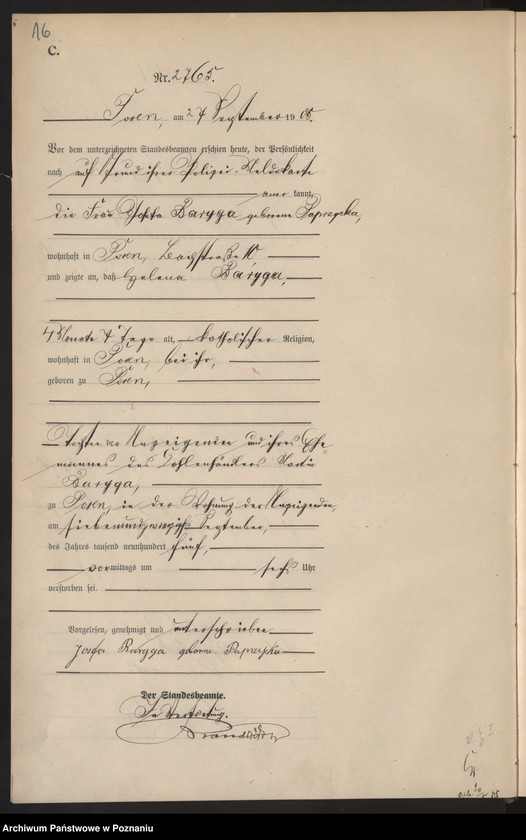 16
C.
Nr. 2765.
Posen, am 27 September 1905.
Vor dem unterzeichneten Standesbeamten erschien heute, der Persönlichkeit
nach auf Grund ihrer Polizei-Meldekarte
anerkannt,
die Frau Josefa Barygа geborene Paprzycka,
wohnhaft in Posen, Bachstraße 10,
und zeigte an, daß Helena Baryga,
4 Monate 7 Tage alt, katholischer Religion,
wohnhaft in Posen, bei ihr,
geboren zu Posen,
Tochter der Anzeigenden und ihres Ehe-
mannes des Kohlenhändlers Martin
Baryga,
zu Posen, in der Wohnung der Anzeigenden,
am siebenundzwanzigsten September,
des Jahres tausend neunhundert fünf,
vormittags um sechs Uhr
verstorben sei.
Vorgelesen, genehmigt und unterschrieben
Josefa Baryga geborne Paprzycka
Der Standesbeamte.
In Vertretung.
Archiwum Państwowe w Poznaniu